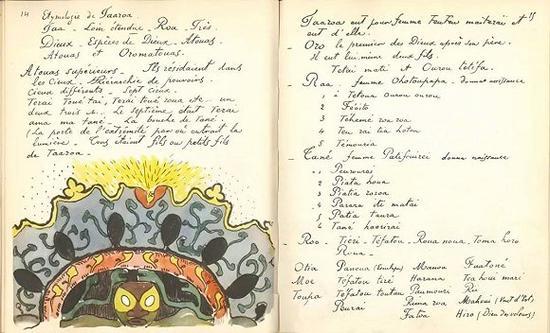 14
Etymologie de Taaroa
Taa - Loin étendue - Roa - Très.
Dieux - Espèces de Dieux. Atouas.
Atouas et Oromatouas.
Atouas supérieurs - Ils résidaient dans
les Cieux. Hiérarchie de pouvoirs.
Cieux différents - Sept cieux.
Terai Toué tai, Terai toué roua etc. un
deux trois etc. Le septième était Terai
ama ma tané. La bouche de Tané.
(La porte de l'extrémité par où entrait la
lumière - Tous étaient fils ou petits fils
de Taaroa.
15
Taaroa eut pour femme
et
eut d'elle.
Oro le premier des Dieux après son père.
Il eut lui même deux fils.
Tetai mati et Ourou tetefa.
Raa - femme Ohotoupapa - donne naissance
1 à Tetoua ourou ourou
2 Féoito
3 Tehemé roa roa
4 Teu rai tia hotou
5 Témouria
Tané femme donne naissance
1 Peurouraï
2 Piata houa
3 Piatia roroa
4 Parara iti mataï
5 Patia Taura
6 Tané haeriraï
Roo - Tieri - Téfatou - Roua noua - Toma hora
Roua -
Otia Panoua Manoua Fuatoné
Moe Téfatou tiré Harana Toa houi mari
Toupa Téfatou toutau Paumouri Rii
Peurai Rima roa Maheui
Fatoa Hiro (Dieu des voleurs)